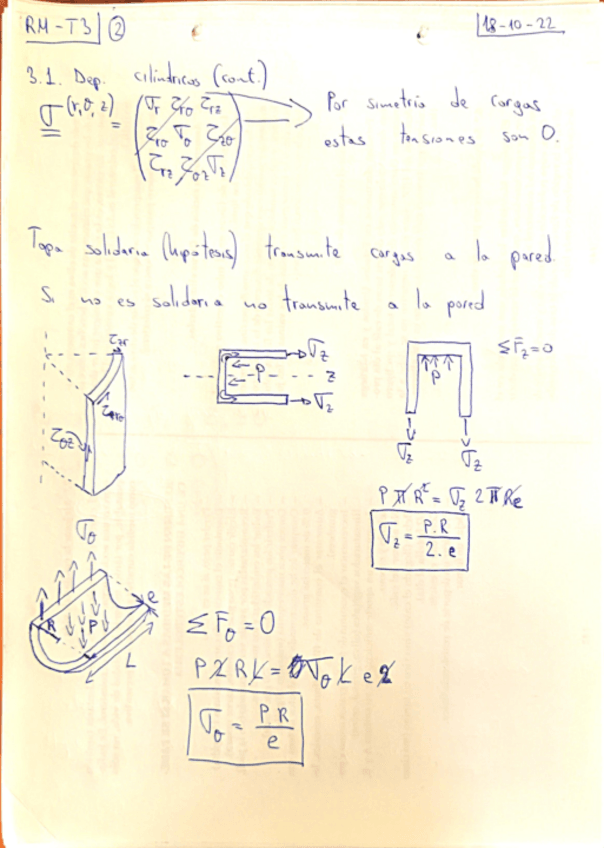 RM-T3 2
18-10-22
3.1. Dep. cilíndricos (cont.)
σ (r,θ,z) = (σr τrθ τrz
τrθ σθ τzθ
τrz τθz σz)
Por simetría de cargas
estas tensiones son 0.
Tapa solidaria (hipótesis) transmite cargas a la pared.
Si no es solidaria no transmite a la pared
τzr
τθz
σz
P
z
σz
P
σz σz
ΣFz=0
P π R² = σz 2 π R e
σz = P.R / 2.e
σθ
R P e
L
ΣFθ = 0
P 2 R L = σθ L e 2
σθ = P R / e